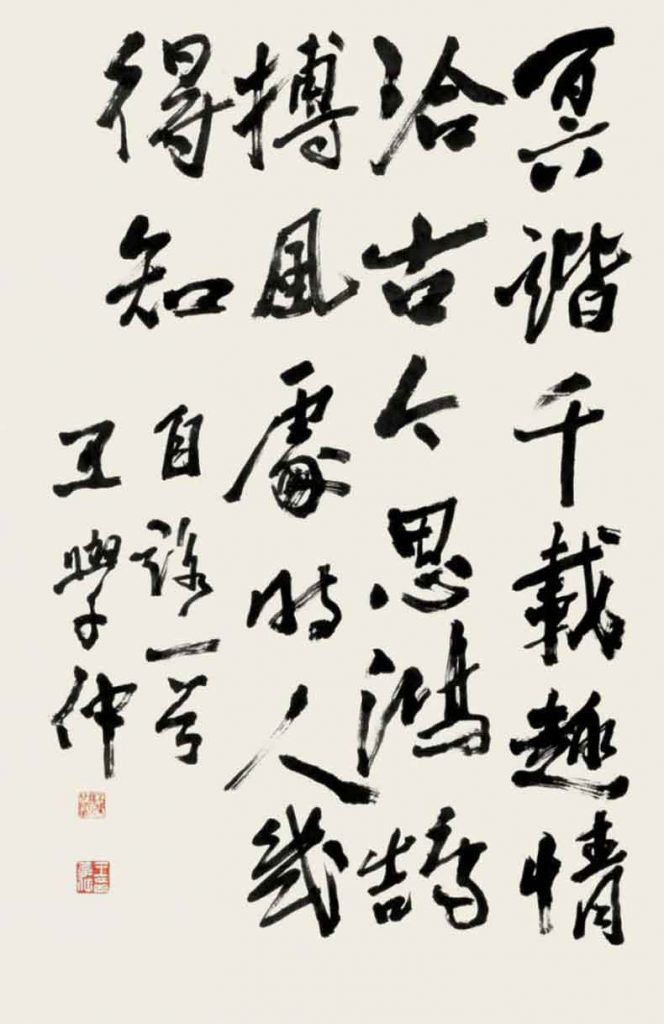 冥諧千載趣情
洽古今思鴻鵠
搏風處時人幾
得知
自詠一首
王學仲